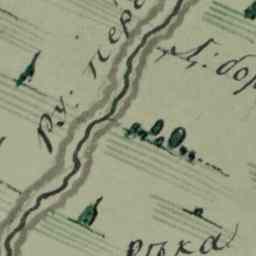 Ру: пере
Л: бор
рѣка